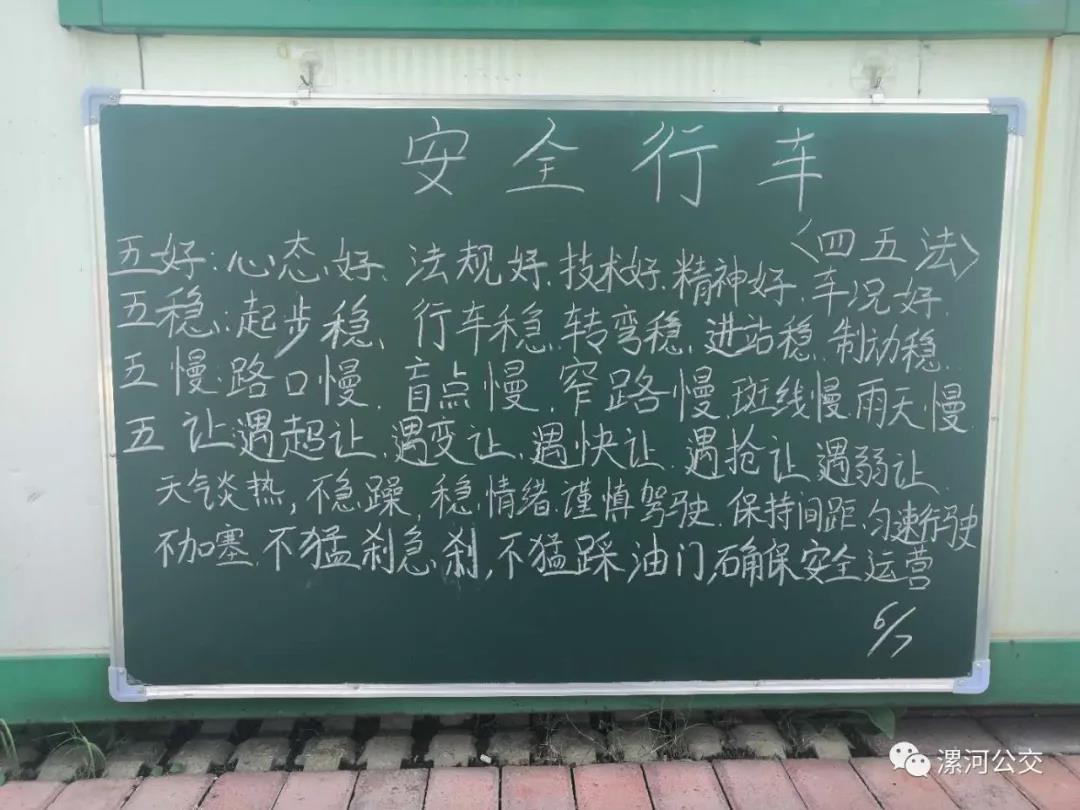 安全行车
〈四五法〉
五好:心态好、法规好、技术好、精神好、车况好.
五稳:起步稳、行车稳、转弯稳、进站稳、制动稳.
五慢:路口慢、盲点慢、窄路慢、斑线慢、雨天慢.
五让遇超让、遇变让、遇快让、遇抢让、遇弱让.
天气炎热,不急躁,稳情绪.谨慎驾驶.保持间距.匀速行驶
不加塞.不猛刹急刹,不猛踩油门,确保安全运营
6/7
漯河公交